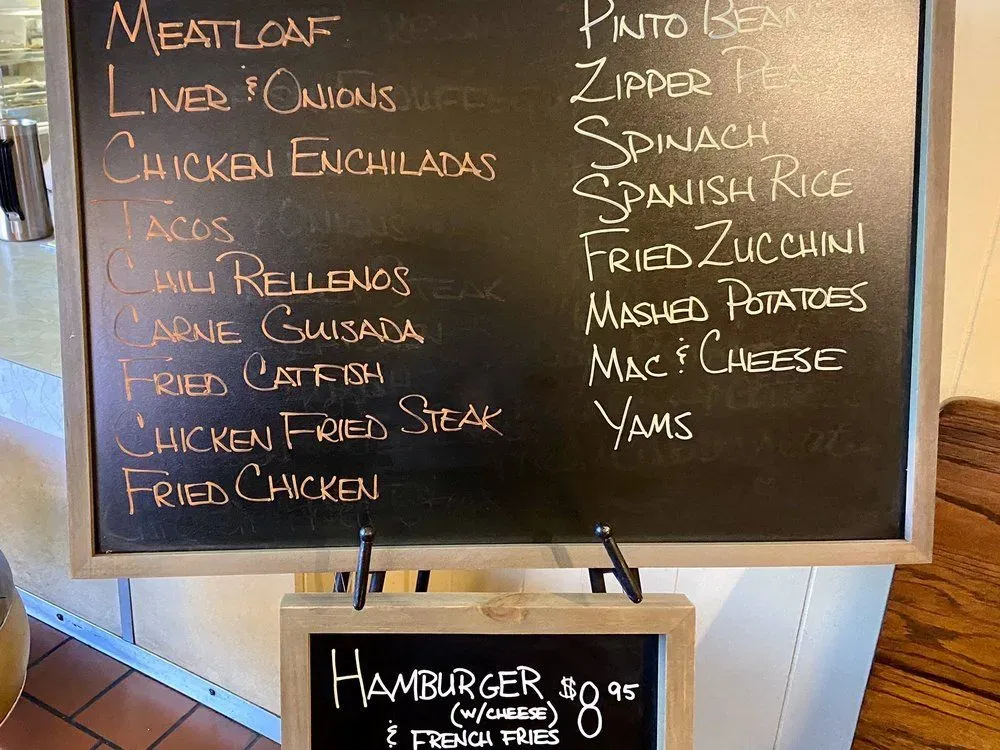 MEATLOAF
LIVER & ONIONS
CHICKEN ENCHILADAS
TACOS
CHILI RELLENOS
CARNE GUISADA
FRIED CATFISH
CHICKEN FRIED STEAK
FRIED CHICKEN
PINTO BEAN
ZIPPER PEA
SPINACH
SPANISH RICE
FRIED ZUCCHINI
MASHED POTATOES
MAC & CHEESE
YAMS
HAMBURGER $8.95
(W/CHEESE)
& FRENCH FRIES